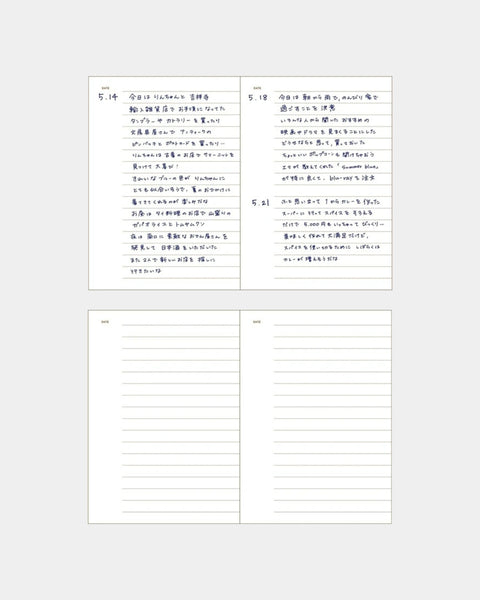 DATE
5.14 今日は りんちゃんと 吉祥寺
輸入雑貨店で お手頃になってた
タンブラーや カトラリーを 買ったり
文房具屋さんで アンティークの
ピンバッチと ポストカードを 買ったり―
りんちゃんは 古着のお店で サマーニットを
見つけて 大喜び!
きれいなブルーの色が りんちゃんに
とても似合いそうで、夏のおでかけに
着てきてくれるのが 楽しみだな
お昼は タイ料理のお店で 山盛りの
ガパオライスと トムヤムクン
夜は 路口に 素敵な おでん屋さんを
発見して 日本酒を いただいた
また 2人で 新しいお店を 探しに
行きたいな
DATE
5.18 今日は 朝から 雨で、のんびり 家で
過ごすことを 決意
いろんな人から 聞いた おすすめの
映画やドラマを 見まくることにした
どうせならと 思って、買っておいた
ちょっといい ポップコーンも 開けちゃおう
エマが 教えてくれた 「Summer blue」
が特に良くて、 blu-rayを注文
5.21 ふと思い立って 1からカレーを 作った
スーパーに行って スパイスを そろえる
だけで 5,000円もいっちゃって びっくり―
美味しく作れて 大満足だけど、
スパイスを使い切るために しばらくは
カレーが増えそうだな
DATE
DATE